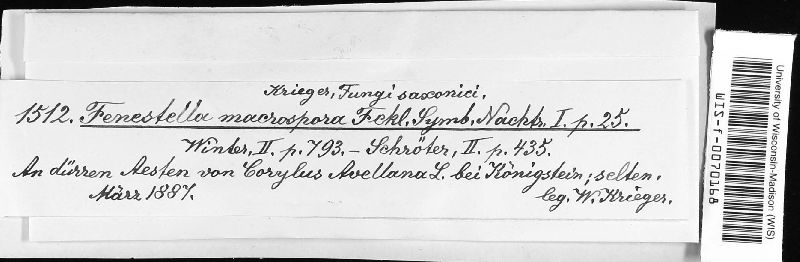 Krieger, Fungi saxonici.
1512. Fenestella macrospora Fckl. Symb. Nachtr. I. p. 25.
Winter, II. p. 793. - Schröter, II. p. 435.
An dürren Aesten von Corylus Avellana L. bei Königstein; selten.
März 1887.
leg. W. Krieger.
University of Wisconsin-Madison (WIS)
WIS-f-0070168